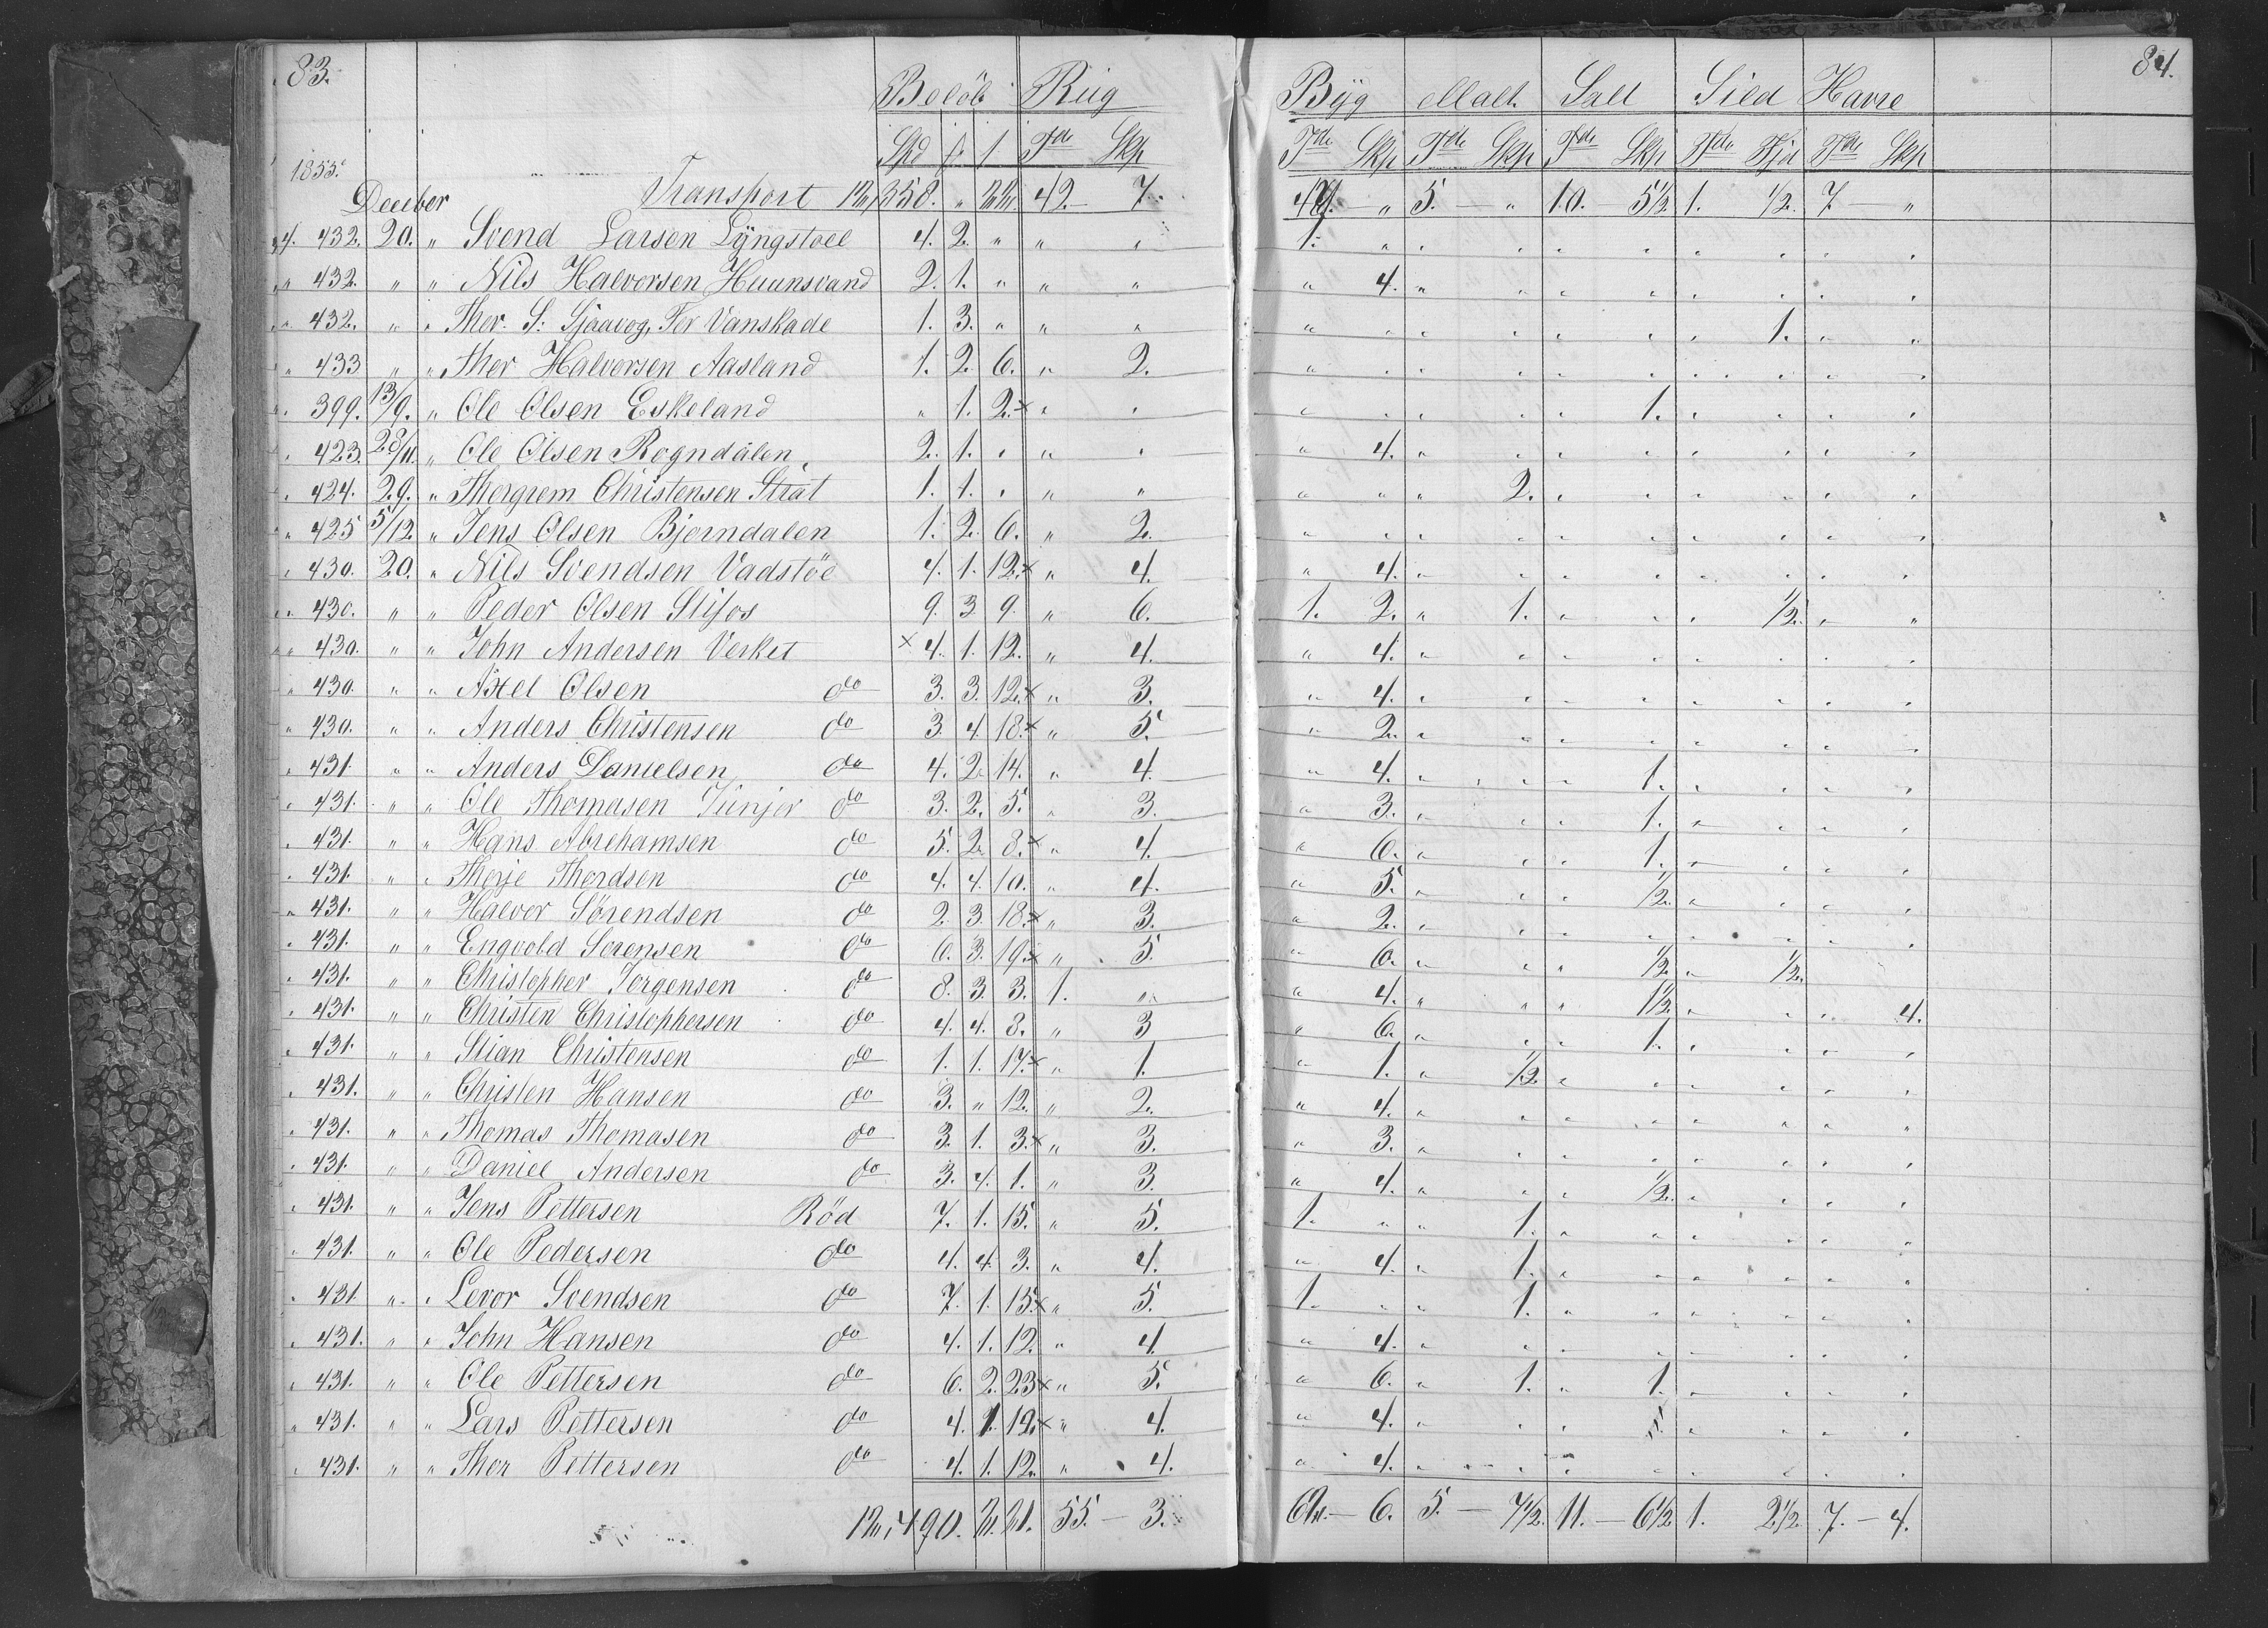 83.
Beløb Rug
Spd ß Tde Skp
1855.
Transport 12,358. " 22. 42 — 7.
December
4. 432. 20. " Svend Larsen Lyngstoel 4. 2. " " "
" 432. " " Nils Halvorsen Huunsvand 2. 1. " " "
" 432. " " Thor. S: Sjaavog, For Vanskade 1. 3. " " "
" 433 " " Thor Halvorsen Aasland 1. 2. 6. " 2.
" 399. 13/9. " Ole Olsen Eskeland " 1. 2. x " "
" 423. 28/11. " Ole Olsen Rogndalen 2. 1. " " "
" 424. 29. " Thorgrem Christensen Strat 1. 1. " " "
" 425 5/12. " Jens Olsen Bjorndalen 1. 2. 6. " 2.
" 430. 20. " Nils Svendsen Vadstöe 4. 1. 12. x " 4.
" 430. " " Peder Olsen Slifos 9. 3 9. " 6.
" 430. " " John Andersen Verket x 4. 1. 12. " 4.
" 430. " " Axel Olsen do 3. 3. 12. x " 3.
" 430. " " Anders Christensen do 3. 4 18. x " 5.
" 431. " " Anders Danielsen do 4. 2. 14. " 4.
" 431. " " Ole Thomasen Junjor do 3. 2. 5. " 3.
" 431. " " Hans Abrehamsen do 5. 2. 8. x " 4.
" 431. " " Therje Thordsen do 4. 4. 10. " 4.
" 431. " " Halvor Sørendsen do 2. 3. 18. x " 3.
" 431. " " Engvold Sorensen do 6. 3. 19. x " 5.
" 431. " " Christopher Jorgensen do 8. 3. 3. 1. "
" 431. " " Christen Christophersen do 4. 4. 8. " 3
" 431. " " Stian Christensen do 1. 1. 17. x " 1.
" 431. " " Christen Hansen do 3. " 12. " 2.
" 431. " " Thomas Thomasen do 3. 1. 3. x " 3.
" 431. " " Daniel Andersen do 3. 4. 1. " 3.
" 431. " " Jens Pettersen Röd 7. 1. 15. " 5.
" 431. " " Ole Pedersen do 4. 4. 3. " 4.
" 431. " " Levor Svendsen do 7. 1. 15. x " 5.
" 431. " " John Hansen do 4. 1. 12. " 4.
" 431. " " Ole Pettersen do 6. 2. 23 x " 5.
" 431. " " Lars Pettersen do 4. 1. 12. x " 4.
" 431. " " Thor Pettersen do 4. 1. 12. " 4.
12,490. 2. 21. 55. — 3.
84.
Byg Malt Salt Sild Havre
Tde Skp Tde Skp Tde Skp Tde Fjd Tde Skp
" 5. — " 10. 5 1/2 1. 1/2. 7. — "
1. " " " " " " " " "
" 4. " " " " " " " "
" " " " " " " 1. " "
" " " " " " " " " "
" " " " " 1. " " " "
" 4. " " " " " " " "
" " " 2. " " " " " "
" " " " " " " " " "
" 4. " " " " " " " "
1. 2. " 1. " " " 1/2. " "
" 4. " " " " " " " "
" 4. " " " " " " " "
" 2. " " " " " " " "
" 4. " " " 1. " " " "
" 3. " " " 1. " " " "
" 6. " " " 1. " " " "
" 5. " " " 1/2. " " " "
" 2. " " " " " " " "
" 6. " " " 1/2. " 1/2.
" 4. " " " 1 1/2. " " " 4.
" 6. " " " 1. " " " "
" 1. " 1/2. " " " " " "
" 4. " " " " " " " "
" 3. " " " " " " " "
" 4. " " " 1/2. " " " "
1. " " 1. " " " " " "
" 4. " 1. " " " " " "
1. " " 1. " " " " " "
" 4. " " " " " " " "
" 6. " 1. " 1. " " " "
" 4. " " " " " " "
" 4. " " " " " " " "
— 6. 5. — 7 1/2. 11. — 6 1/2 1. 2 1/2. 7. — 4.